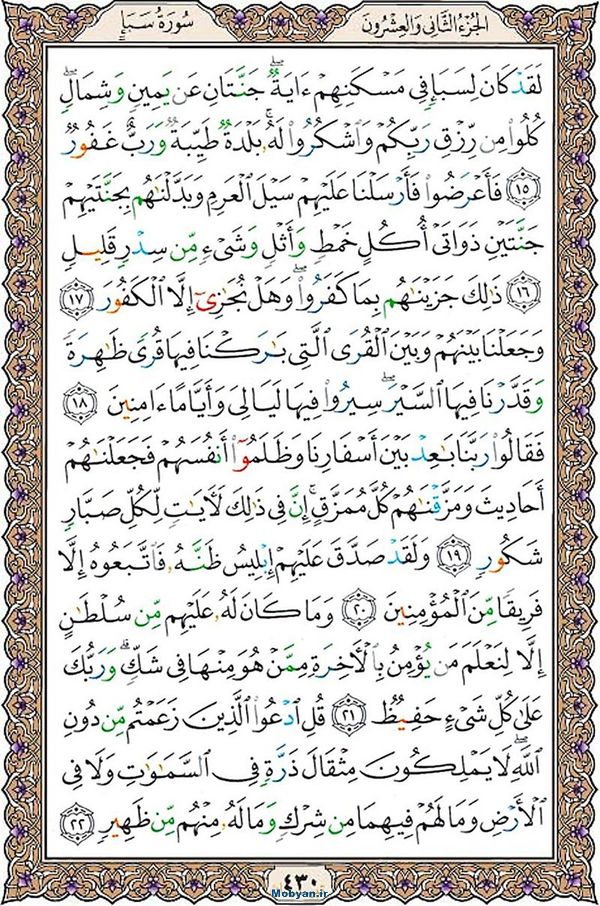 الجُزءُ الثَّانِي وَالعِشرُونَ
سُورَةُ سَبَإٍ
لَقَدْ كَانَ لِسَبَإٍ فِي مَسْكَنِهِمْ ءَايَةٌ ۖ جَنَّتَانِ عَن يَمِينٍ وَشِمَالٍ ۖ
كُلُوا۟ مِن رِّزْقِ رَبِّكُمْ وَٱشْكُرُوا۟ لَهُۥ ۚ بَلْدَةٌ طَيِّبَةٌ وَرَبٌّ غَفُورٌ
١٥ فَأَعْرَضُوا۟ فَأَرْسَلْنَا عَلَيْهِمْ سَيْلَ ٱلْعَرِمِ وَبَدَّلْنَٰهُم بِجَنَّتَيْهِمْ
جَنَّتَيْنِ ذَوَاتَىْ أُكُلٍ خَمْطٍ وَأَثْلٍ وَشَىْءٍ مِّن سِدْرٍ قَلِيلٍ
١٦ ذَٰلِكَ جَزَيْنَٰهُم بِمَا كَفَرُوا۟ ۖ وَهَلْ نُجَٰزِىٓ إِلَّا ٱلْكَفُورَ ١٧
وَجَعَلْنَا بَيْنَهُمْ وَبَيْنَ ٱلْقُرَى ٱلَّتِى بَٰرَكْنَا فِيهَا قُرًى ظَٰهِرَةً
وَقَدَّرْنَا فِيهَا ٱلسَّيْرَ ۖ سِيرُوا۟ فِيهَا لَيَالِىَ وَأَيَّامًا ءَامِنِينَ ١٨
فَقَالُوا۟ رَبَّنَا بَٰعِدْ بَيْنَ أَسْفَارِنَا وَظَلَمُوٓا۟ أَنفُسَهُمْ فَجَعَلْنَٰهُمْ
أَحَادِيثَ وَمَزَّقْنَٰهُمْ كُلَّ مُمَزَّقٍ ۚ إِنَّ فِى ذَٰلِكَ لَءَايَٰتٍ لِّكُلِّ صَبَّارٍ
شَكُورٍ ١٩ وَلَقَدْ صَدَّقَ عَلَيْهِمْ إِبْلِيسُ ظَنَّهُۥ فَٱتَّبَعُوهُ إِلَّا
فَرِيقًا مِّنَ ٱلْمُؤْمِنِينَ ٢٠ وَمَا كَانَ لَهُۥ عَلَيْهِم مِّن سُلْطَٰنٍ
إِلَّا لِنَعْلَمَ مَن يُؤْمِنُ بِٱلْءَاخِرَةِ مِمَّنْ هُوَ مِنْهَا فِى شَكٍّ ۗ وَرَبُّكَ
عَلَىٰ كُلِّ شَىْءٍ حَفِيظٌ ٢١ قُلِ ٱدْعُوا۟ ٱلَّذِينَ زَعَمْتُم مِّن دُونِ
ٱللَّهِ ۖ لَا يَمْلِكُونَ مِثْقَالَ ذَرَّةٍ فِى ٱلسَّمَٰوَٰتِ وَلَا فِى
ٱلْأَرْضِ وَمَا لَهُمْ فِيهِمَا مِن شِرْكٍ وَمَا لَهُۥ مِنْهُم مِّن ظَهِيرٍ ٢٢
٤٣٠
Mobyan.ir